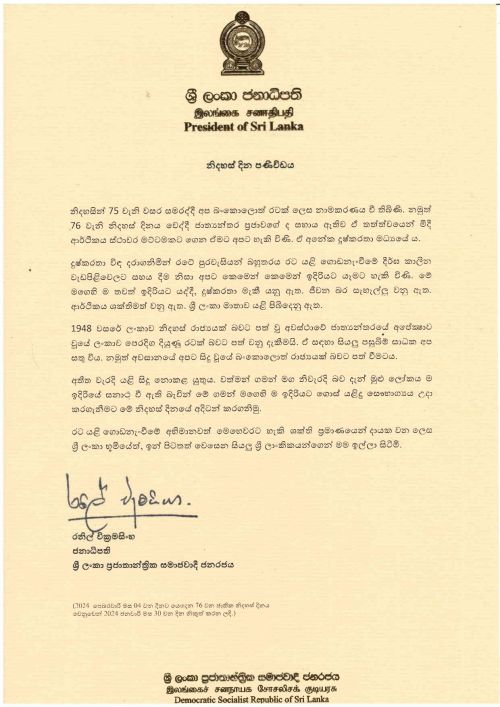 ශ්‍රී ලංකා ජනාධිපති
இலங்கை சனாதிபதி
President of Sri Lanka
නිදහස් දින පණිවිඩය
නිදහසින් 75 වැනි වසර සමරද්දී අප බංකොලොත් රටක් ලෙස නාමකරණය වී තිබිණි. නමුත්
76 වැනි නිදහස් දිනය වෙද්දී ජාත්‍යන්තර ප්‍රජාවගේ ද සහාය ඇතිව ඒ තත්ත්වයෙන් මිදී
ආර්ථිකය ස්ථාවර මට්ටමකට ගෙන ඒමට අපට හැකි විණි. ඒ අනේක දුෂ්කරතා මධ්‍යයේ ය.
දුෂ්කරතා විඳ දරාගනිමින් රටේ පුරවැසියන් බහුතරය රට යළි ගොඩනැංවීමේ දීර්ඝ කාලීන
වැඩපිළිවෙලට සහය දීම නිසා අපට කෙමෙන් කෙමෙන් ඉදිරියට යෑමට හැකි විණි. මේ
මගෙහි ම තවත් ඉදිරියට යද්දී, දුෂ්කරතා මැකී යනු ඇත. ජීවන බර සැහැල්ලු වනු ඇත.
ආර්ථිකය ශක්තිමත් වනු ඇත. ශ්‍රී ලංකා මාතාව යළි පිබිදෙනු ඇත.
1948 වසරේ ලංකාව නිදහස් රාජ්‍යයක් බවට පත් වූ අවස්ථාවේ ජාත්‍යන්තරයේ අපේක්ෂාව
වූයේ ලංකාව පෙරදිග දියුණු රටක් බවට පත් වනු දැකීමයි. ඒ සඳහා සියලු පසුබිම් සාධක අප
සතු විය. නමුත් අවසානයේ අපට සිදු වූයේ බංකොලොත් රාජ්‍යයක් බවට පත් වීමටය.
අතීත වැරදි යළි සිදු නොකළ යුතුය. වත්මන් ගමන් මග නිවැරදි බව දැන් මුළු ලෝකය ම
ඉදිරියේ සනාථ වී ඇති බැවින් මේ ගමන් මගෙහි ම ඉදිරියට ගොස් යළිදු සෞභාග්‍යය උදා
කරගැනීමට මේ නිදහස් දිනයේ අදිටන් කරගනිමු.
රට යළි ගොඩනැංවීමේ අභිමානවත් මෙහෙවරට හැකි ශක්ති ප්‍රමාණයෙන් දායක වන ලෙස
ශ්‍රී ලංකා භූමියේත්, ඉන් පිටතත් වෙසෙන සියලු ශ්‍රී ලාංකිකයන්ගෙන් මම ඉල්ලා සිටිමි.
රනිල් වික්‍රමසිංහ
ජනාධිපති
ශ්‍රී ලංකා ප්‍රජාතාන්ත්‍රික සමාජවාදී ජනරජය
(2024 පෙබරවාරි මස 04 වන දිනට යෙදෙන 76 වන ජාතික නිදහස් දිනය
වෙනුවෙන් 2024 ජනවාරි මස 30 වන දින නිකුත් කරන ලදි.)
ශ්‍රී ලංකා ප්‍රජාතාන්ත්‍රික සමාජවාදී ජනරජය
இலங்கைச் சனநாயக சோசலிசக் குடியரசு
Democratic Socialist Republic of Sri Lanka